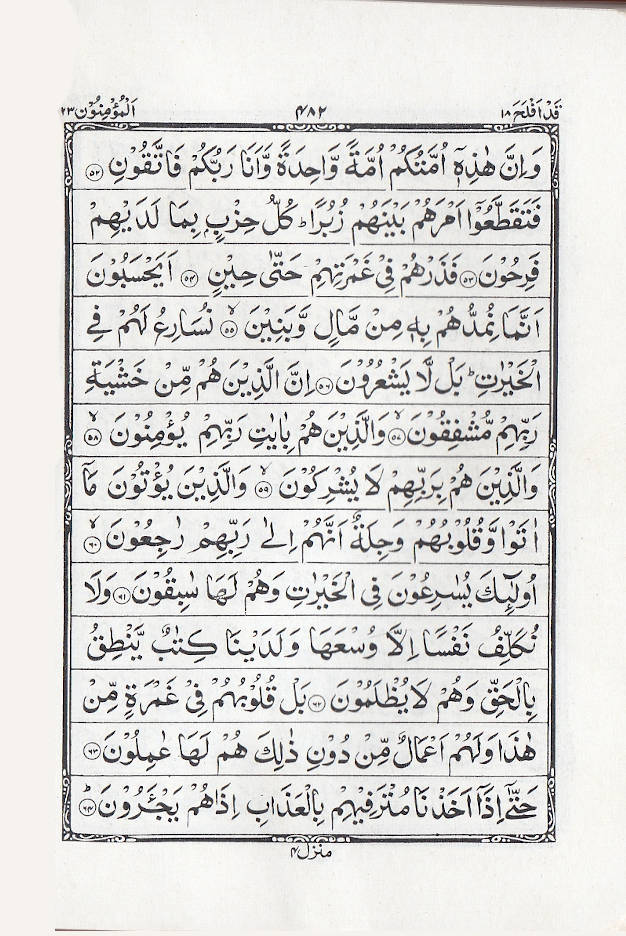 قَدْ اَفْلَحَ ۱۸ ۴۸۲ اَلْمُؤْمِنُوْن ۲۳
وَاِنَّ هٰذِهٖٓ اُمَّتُكُمْ اُمَّةً وَّاحِدَةً وَّاَنَا رَبُّكُمْ فَاتَّقُوْنِ ۝۵۲
فَتَقَطَّعُوْٓا اَمْرَهُمْ بَيْنَهُمْ زُبُرًا ؕ كُلُّ حِزْبٍۭ بِمَا لَدَيْهِمْ
فَرِحُوْنَ ۝۵۳ فَذَرْهُمْ فِيْ غَمْرَتِهِمْ حَتّٰى حِيْنٍ ۝۵۴ اَيَحْسَبُوْنَ
اَنَّمَا نُمِدُّهُمْ بِهٖ مِنْ مَّالٍ وَّبَنِيْنَ ۝۵۵ۙ نُسَارِعُ لَهُمْ فِي
الْخَيْرٰتِ ؕ بَلْ لَّا يَشْعُرُوْنَ ۝۵۶ اِنَّ الَّذِيْنَ هُمْ مِّنْ خَشْيَةِ
رَبِّهِمْ مُّشْفِقُوْنَ ۝۵۷ۙ وَالَّذِيْنَ هُمْ بِاٰيٰتِ رَبِّهِمْ يُؤْمِنُوْنَ ۝۵۸ۙ
وَالَّذِيْنَ هُمْ بِرَبِّهِمْ لَا يُشْرِكُوْنَ ۝۵۹ۙ وَالَّذِيْنَ يُؤْتُوْنَ مَآ
اٰتَوْا وَّقُلُوْبُهُمْ وَجِلَةٌ اَنَّهُمْ اِلٰى رَبِّهِمْ رٰجِعُوْنَ ۝۶۰ۙ
اُولٰٓئِكَ يُسٰرِعُوْنَ فِي الْخَيْرٰتِ وَهُمْ لَهَا سٰبِقُوْنَ ۝۶۱ وَلَا
نُكَلِّفُ نَفْسًا اِلَّا وُسْعَهَا وَلَدَيْنَا كِتٰبٌ يَّنْطِقُ
بِالْحَقِّ وَهُمْ لَا يُظْلَمُوْنَ ۝۶۲ بَلْ قُلُوْبُهُمْ فِيْ غَمْرَةٍ مِّنْ
هٰذَا وَلَهُمْ اَعْمَالٌ مِّنْ دُوْنِ ذٰلِكَ هُمْ لَهَا عٰمِلُوْنَ ۝۶۳
حَتّٰٓى اِذَآ اَخَذْنَا مُتْرَفِيْهِمْ بِالْعَذَابِ اِذَا هُمْ يَجْـَٔرُوْنَ ۝۶۴ؕ
منزل ۴